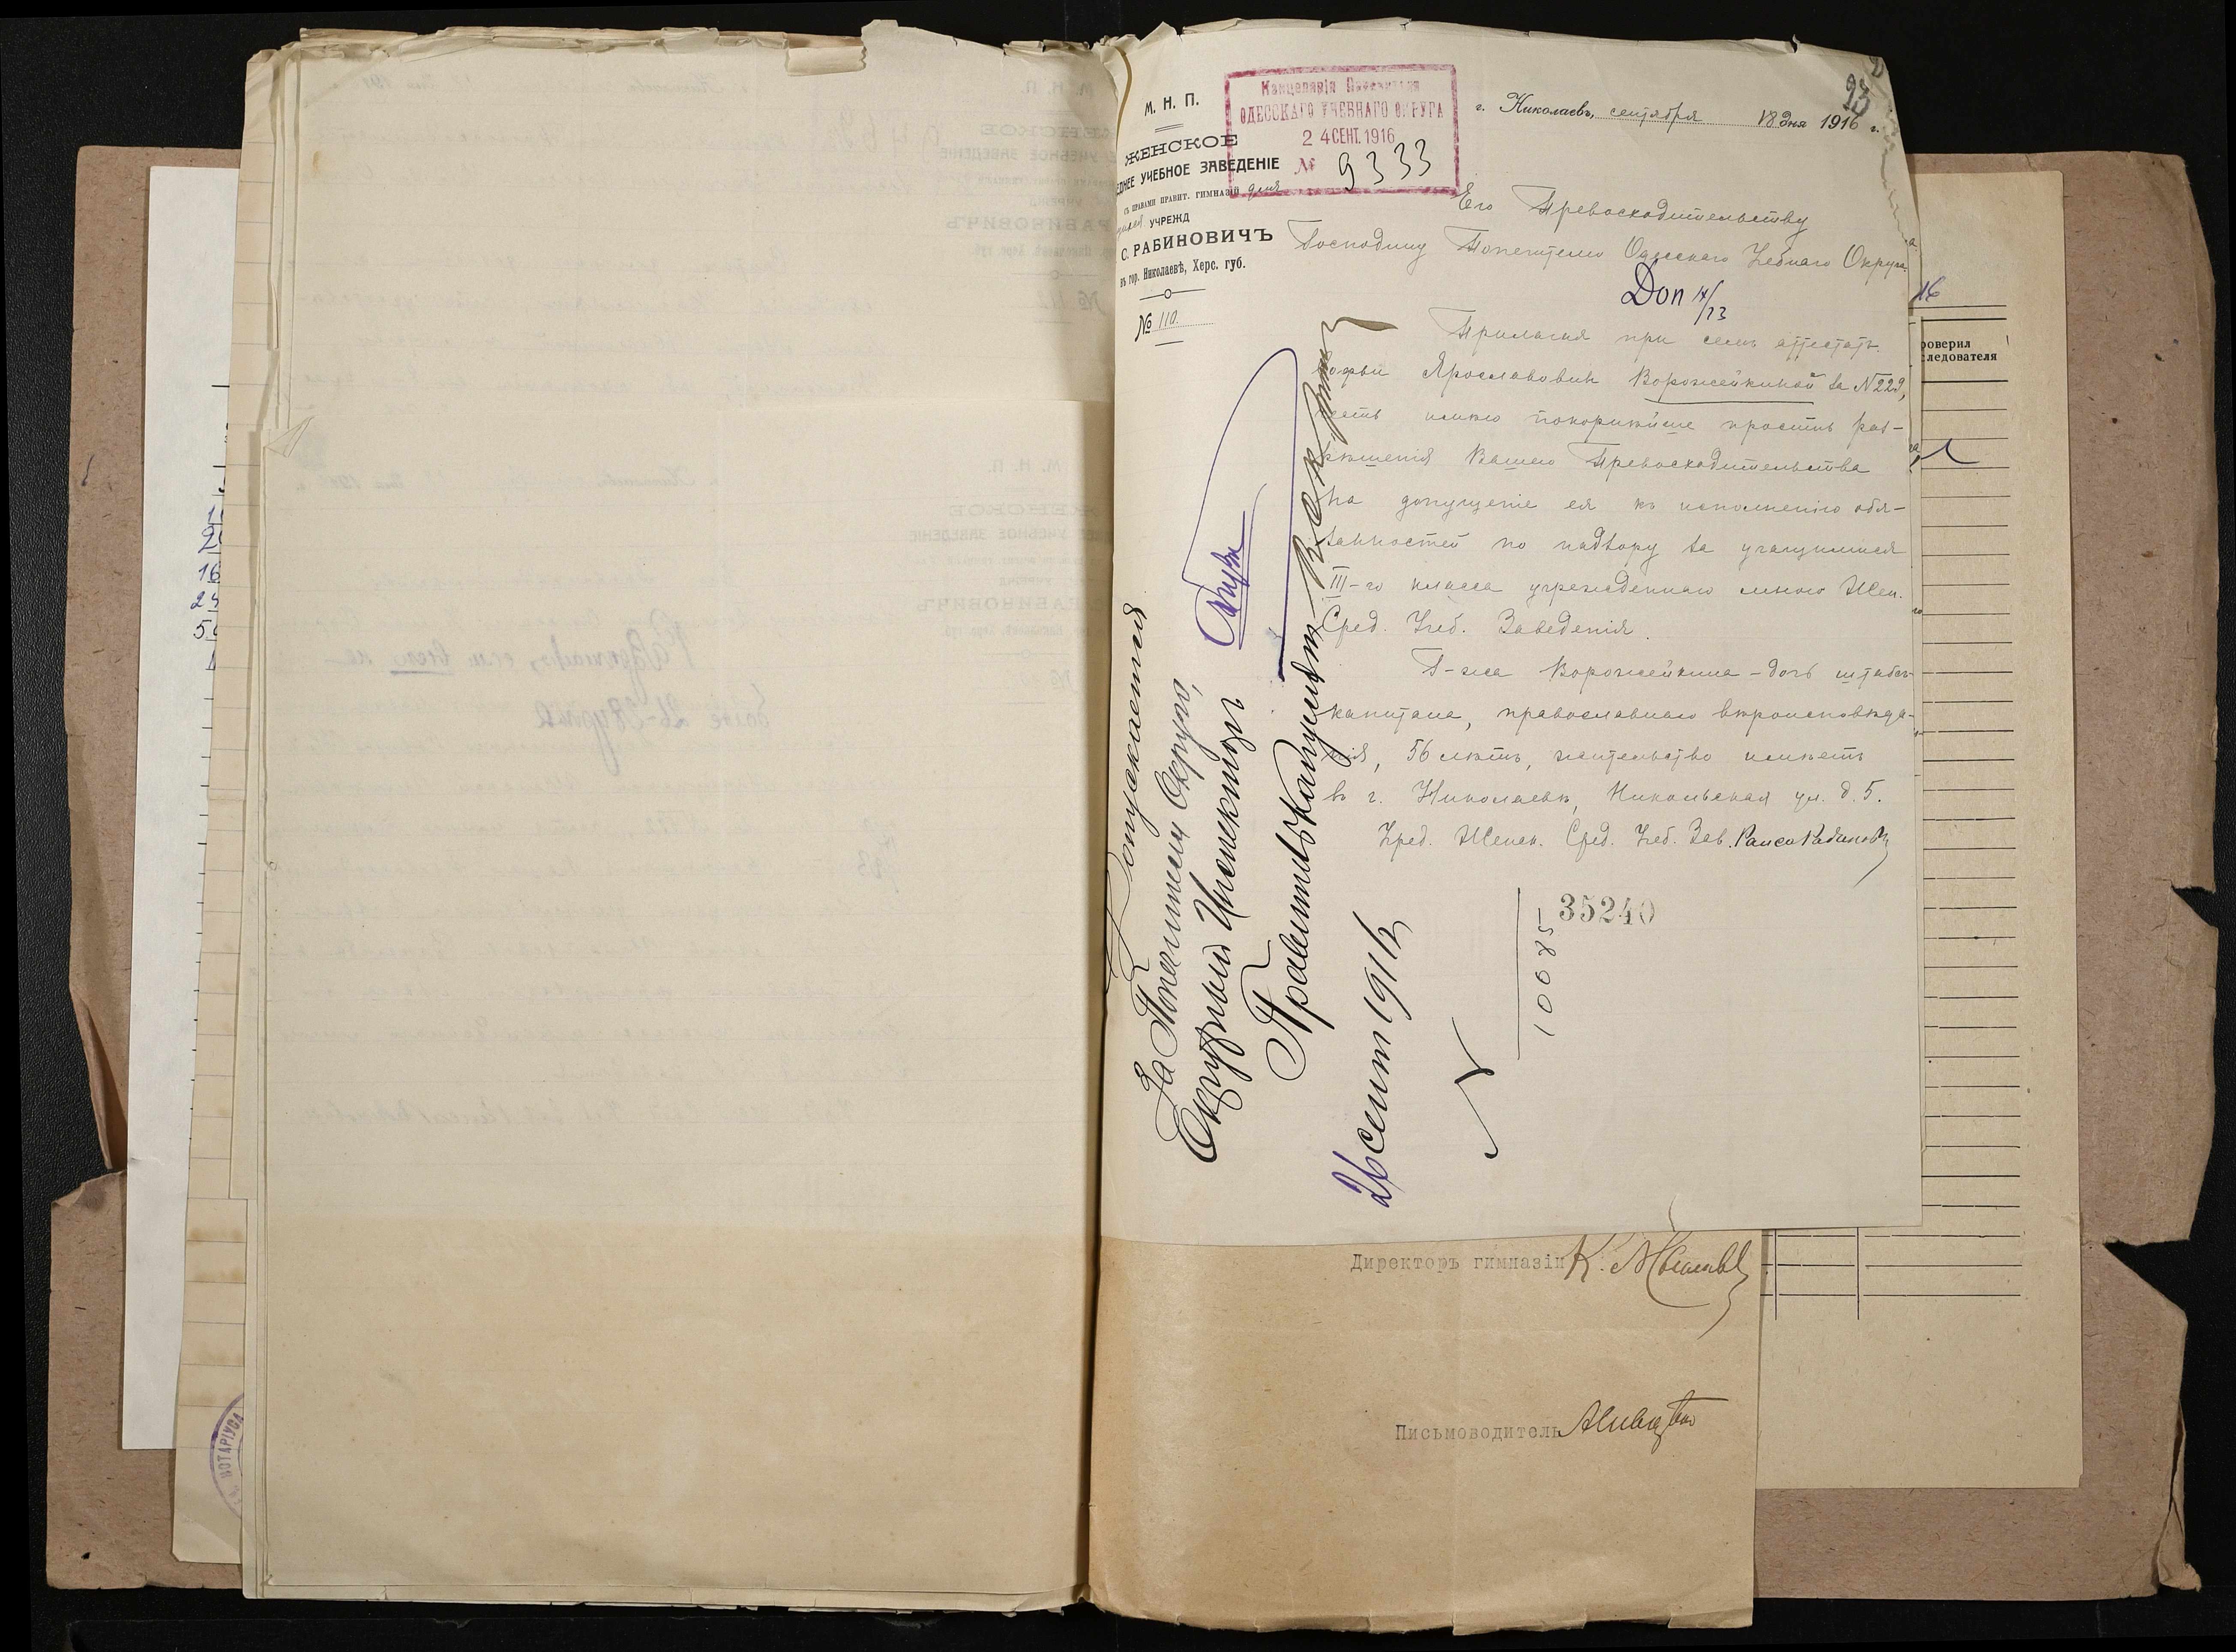 93
М. Н. П.
ЖЕНСКОЕ
ДНЕЕ УЧЕБНОЕ ЗАВЕДЕНІЕ
СЪ ПРАВАМИ ПРАВИТ. ГИМНАЗІЙ для
УЧРЕЖД
С. РАБИНОВИЧЪ
въ гор. Николаевѣ, Херс. губ.
№ 110.
Канцелярія Попечителя
ОДЕССКАГО УЧЕБНАГО ОКРУГА
24 СЕНТ. 1916
№ 9333
г. Николаевъ, сентября 18 дня 1916 г.
Его Превосходительству
Господину Попечителю Одесскаго Учебнаго Округа.
Доп 14/23
Прилагая при семъ аттестатъ
Софьи Ярославовны Ворожейкиной за №229,
честь имѣю покорнѣйше просить раз-
рѣшенія Вашего Превосходительства
на допущеніе ея къ исполненію обя-
занностей по надзору за учащимися
III-го класса учрежденнаго мною Жен.
Сред. Учеб. Заведенія.
Г-жа Ворожейкина - дочь штабсъ-
капитана, православнаго вѣроисповѣда-
нія, 56 лѣтъ, жительство имѣетъ
въ г. Николаевѣ, Никольская ул. д. 5.
Учред. Женск. Сред. Учеб. Зав. Раиса Рабинович
Допускается
За Попечителя Округа,
Окружный Инспекторъ
Правитель Канцеляріи
26 сент 1916
10085
35240
Директоръ гимназіи К.
Письмоводитель
16
роверил
ледователя
2
16
24
5
НОТАРІУСА